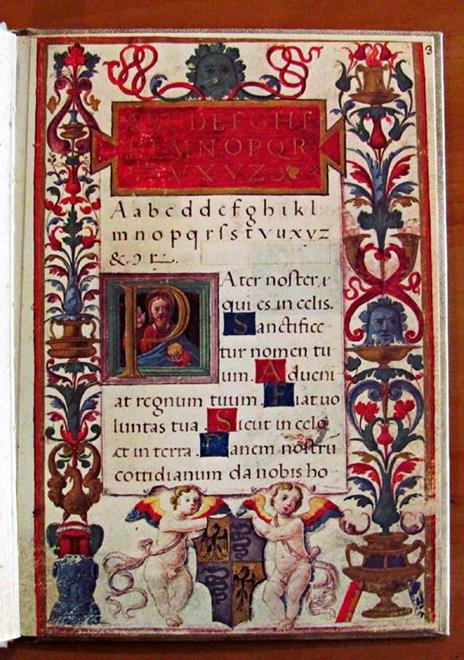 3
DEFGHI
MNOPQR
VXYZ
A a b c d d e f g h i k l
m n o p q r ſ s t v u x y z
&
PAter noſter,
qui es in celis.
Sanctifice
tur nomen tu
um. Adueni
at regnum tuum. Fiat uo
luntas tua. Sicut in celo
et in terra. Panem noſtrũ
cottidianum da nobis ho